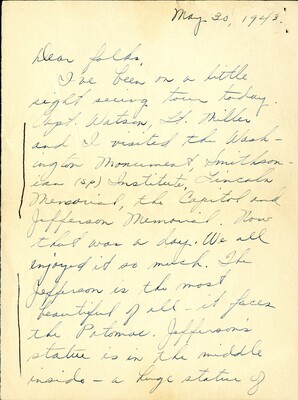 May 30, 1943.
Dear folks,
I've been on a little
sight seeing tour today.
Capt. Watson, Lt. Miller
and I visited the Wash-
ington Monument, Smithson-
ian (sp) Institute, Lincoln
Memorial, the Capitol and
Jefferson Memorial. Now
that was a day. We all
enjoyed it so much. The
Jefferson is the most
beautiful of all - it faces
the Potomac. Jefferson's
statue is in the middle
inside - a huge statue of